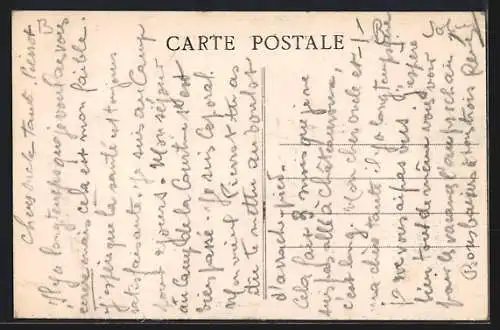 CARTE POSTALE
Chers oncle tante Pierrot
Il y a longtemps que je voulais vous
écrire mais cela est mon faible.
J'espère que la santé est toujours
satisfaisante. je suis au Camp
pour jours. Mon séjour
au Camp de la Courtine s'est
bien passé. Je suis caporal.
Mon vieil Pierrot tu as
dû te mettre au boulot
d'arrach-pied.
Cela fait 3 mois que je ne
suis pas allé à Châteauroux,
c'est long. Mon cher oncle et
ma chère tante il y a longtemps que
je ne vous ai pas vus. J'espère
bien tout de même vous voir
pour les vacances
Bons baisers à tous trois